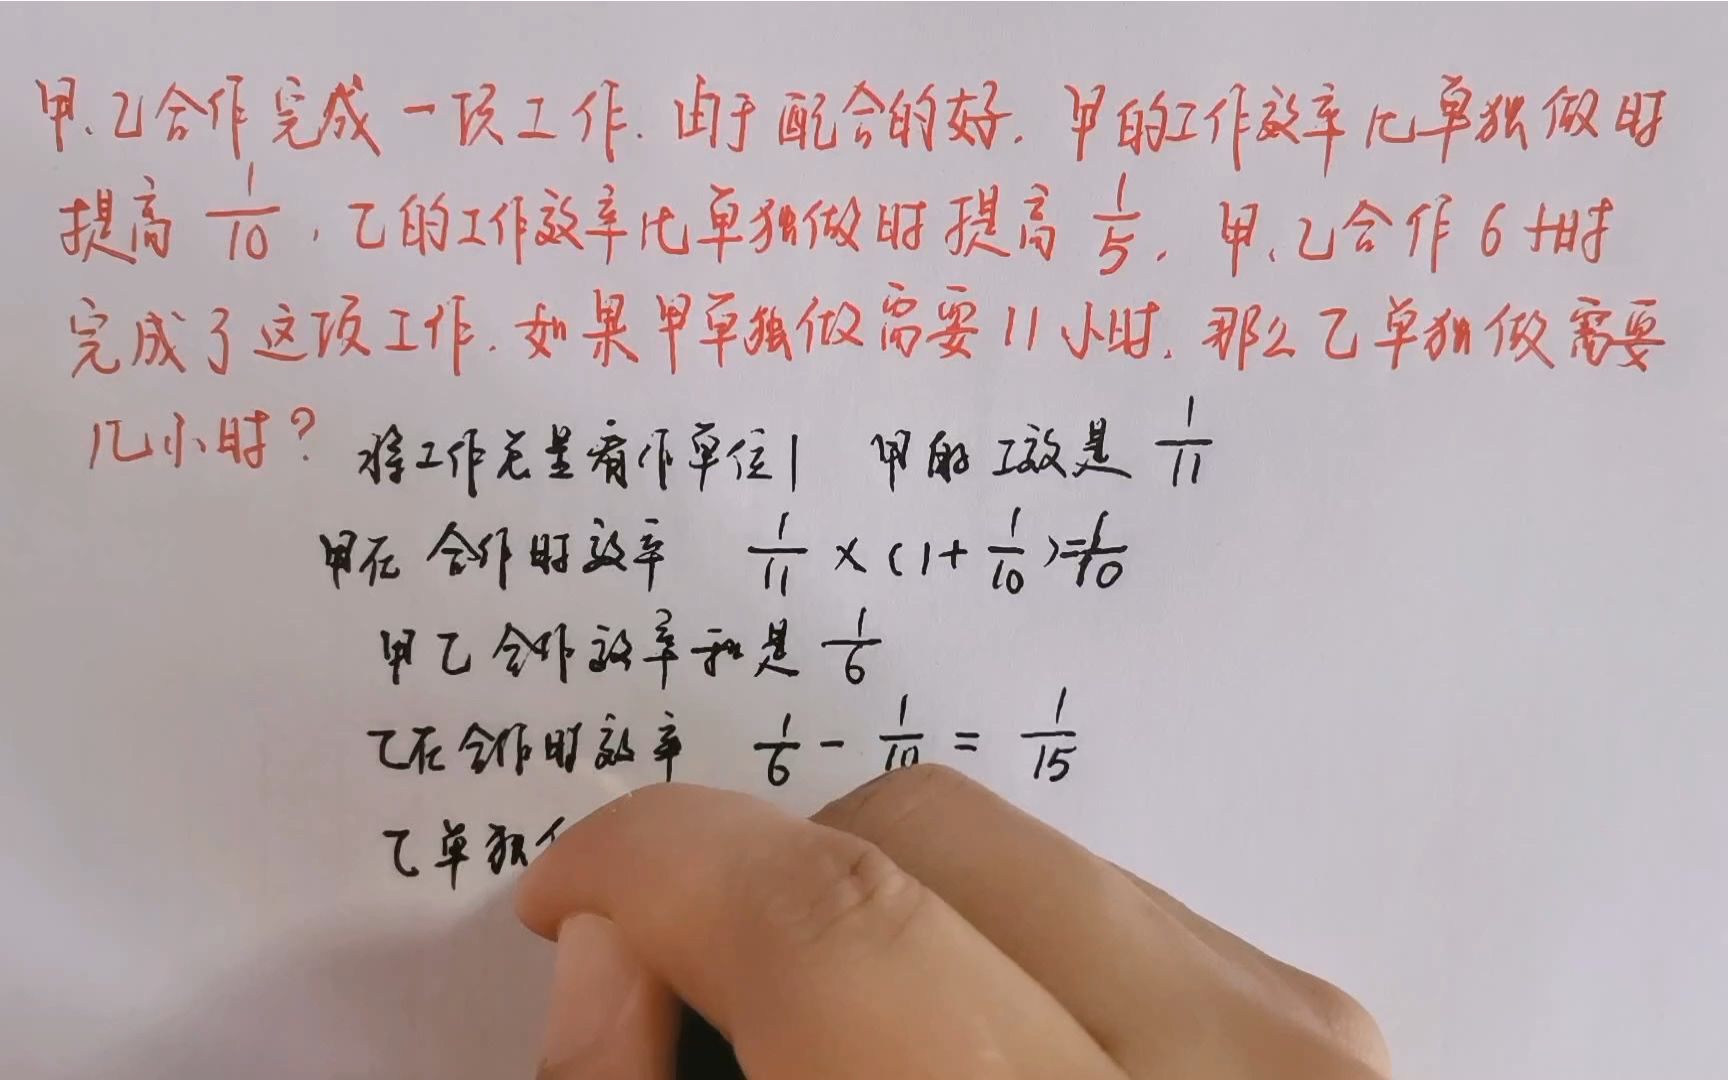 甲、乙合作完成一项工作.由于配合的好.甲的工作效率比单独做时
提高 1/10,乙的工作效率比单独做时提高 1/5.甲、乙合作6小时
完成了这项工作.如果甲单独做需要11小时.那么乙单独做需要
几小时?
将工作总量看作单位1 甲的工效是 1/11
甲在合作时效率 1/11 ×(1+1/10)=1/10
甲乙合作效率和是 1/6
乙在合作时效率 1/6 - 1/10 = 1/15
乙单独